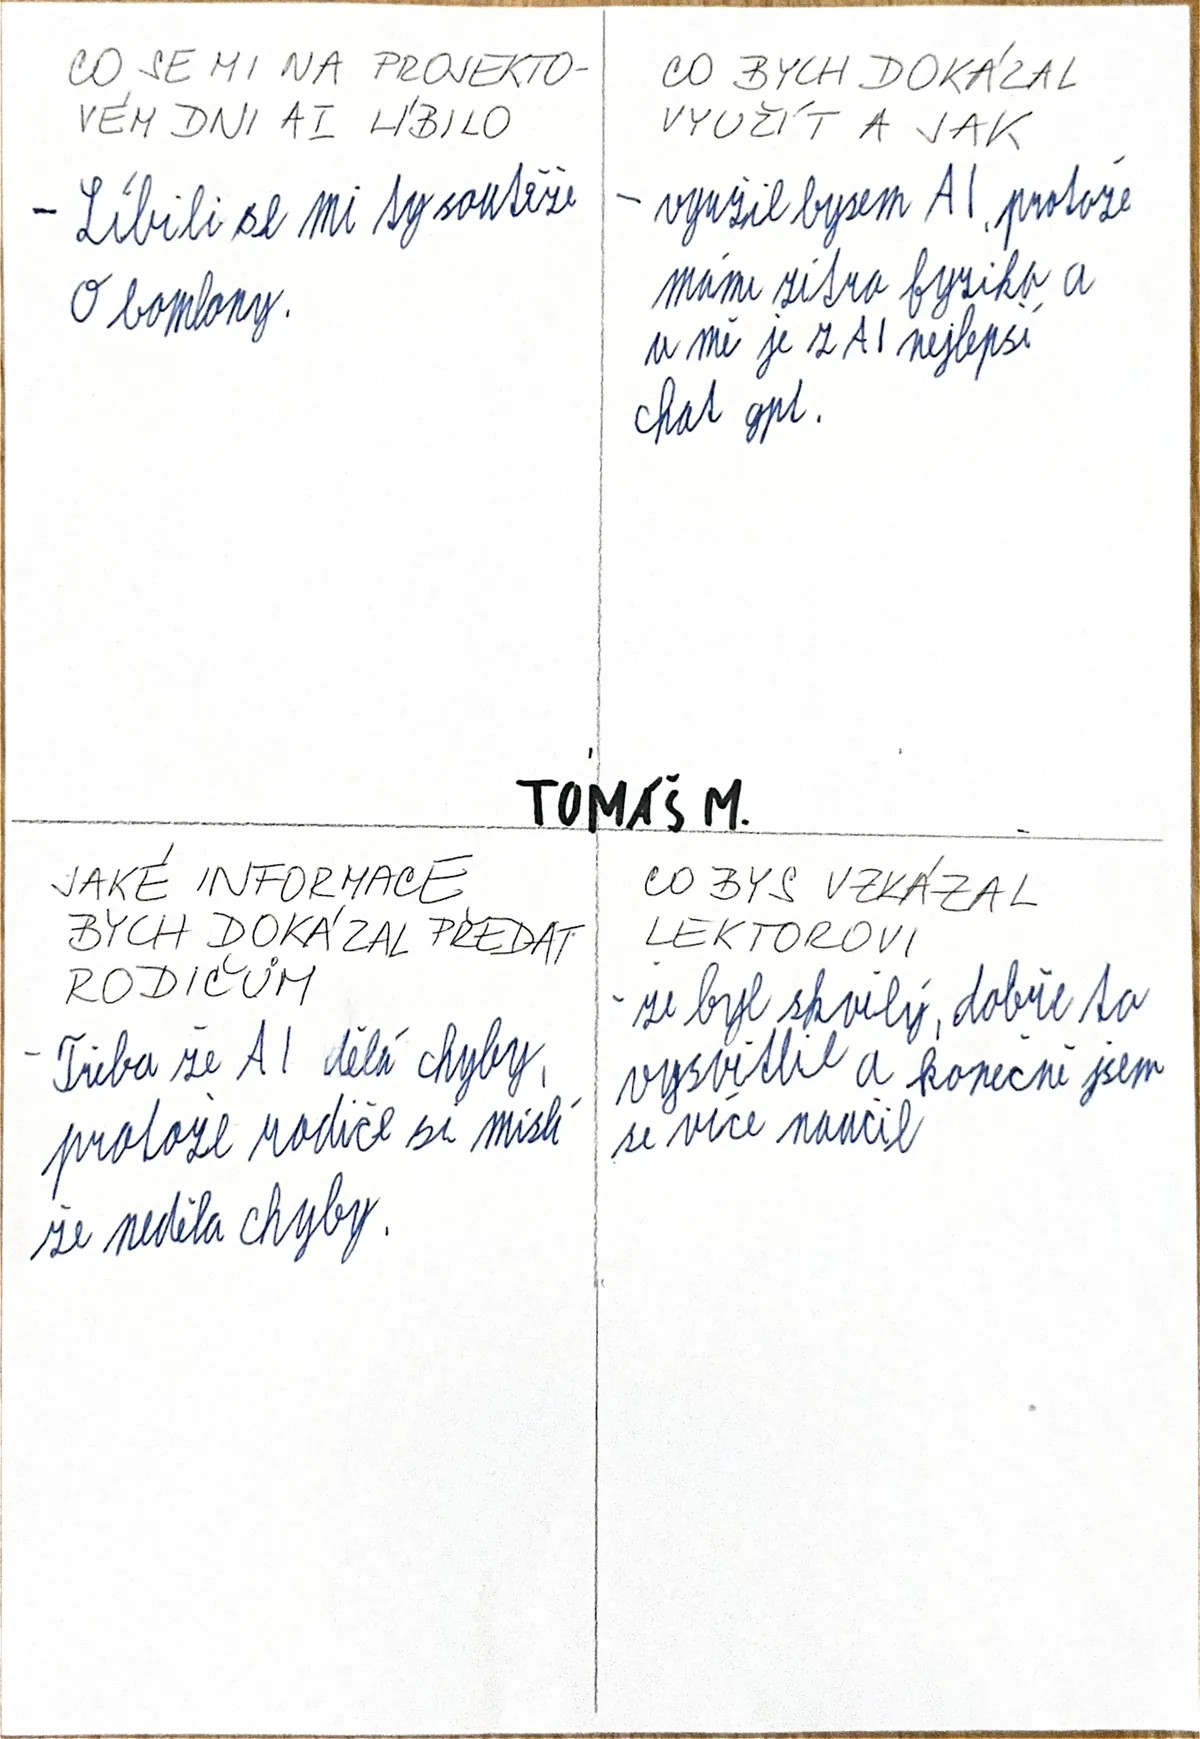 CO SE MI NA PROJEKTO-
VÉM DNI AI LÍBILO
- Líbili se mi ty soutěže
O bombony.
CO BYCH DOKÁZAL
VYUŽÍT A JAK
- využil bysem AI, protože
mám zítra fyziku a
u mě je z AI nejlepší
chat gpt.
TOMÁŠ M.
JAKÉ INFORMACE
BYCH DOKÁZAL PŘEDAT
RODIČŮM
- Třeba že AI dělá chyby,
protože rodiče si mislí
že neděla chyby.
CO BYS VZKÁZAL
LEKTOROVI
- že byl skvělý, dobře to
vysvětlil a konečně jsem
se více naučil